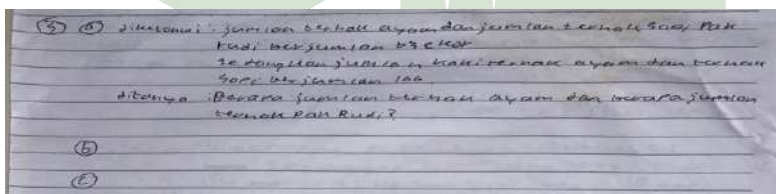 ⑤ ⓐ diketahui : jumlah ternak ayam dan jumlah ternak sapi Pak
Rudi berjumlah 63 ekor
sedangkan jumlah kaki ternak ayam dan ternak
sapi berjumlah
ditanya : Berapa jumlah ternak ayam dan berapa jumlah
ternak Pak Rudi?
ⓑ
ⓒ